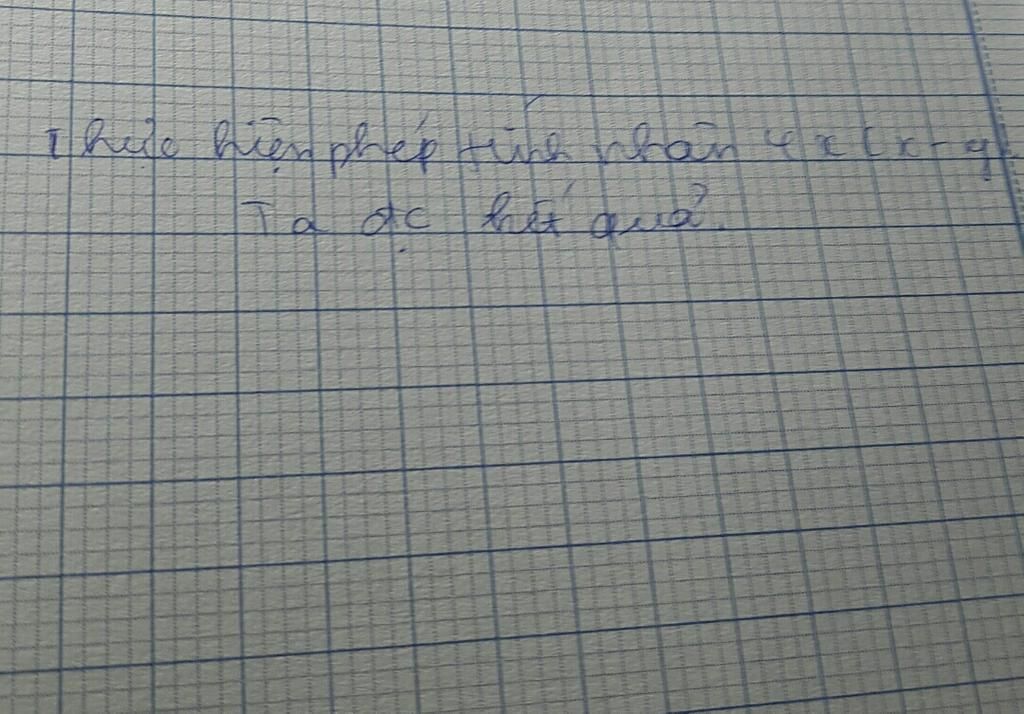 Thực hiện phép tính nhân 4x(x-y).
Ta đc kết quả.